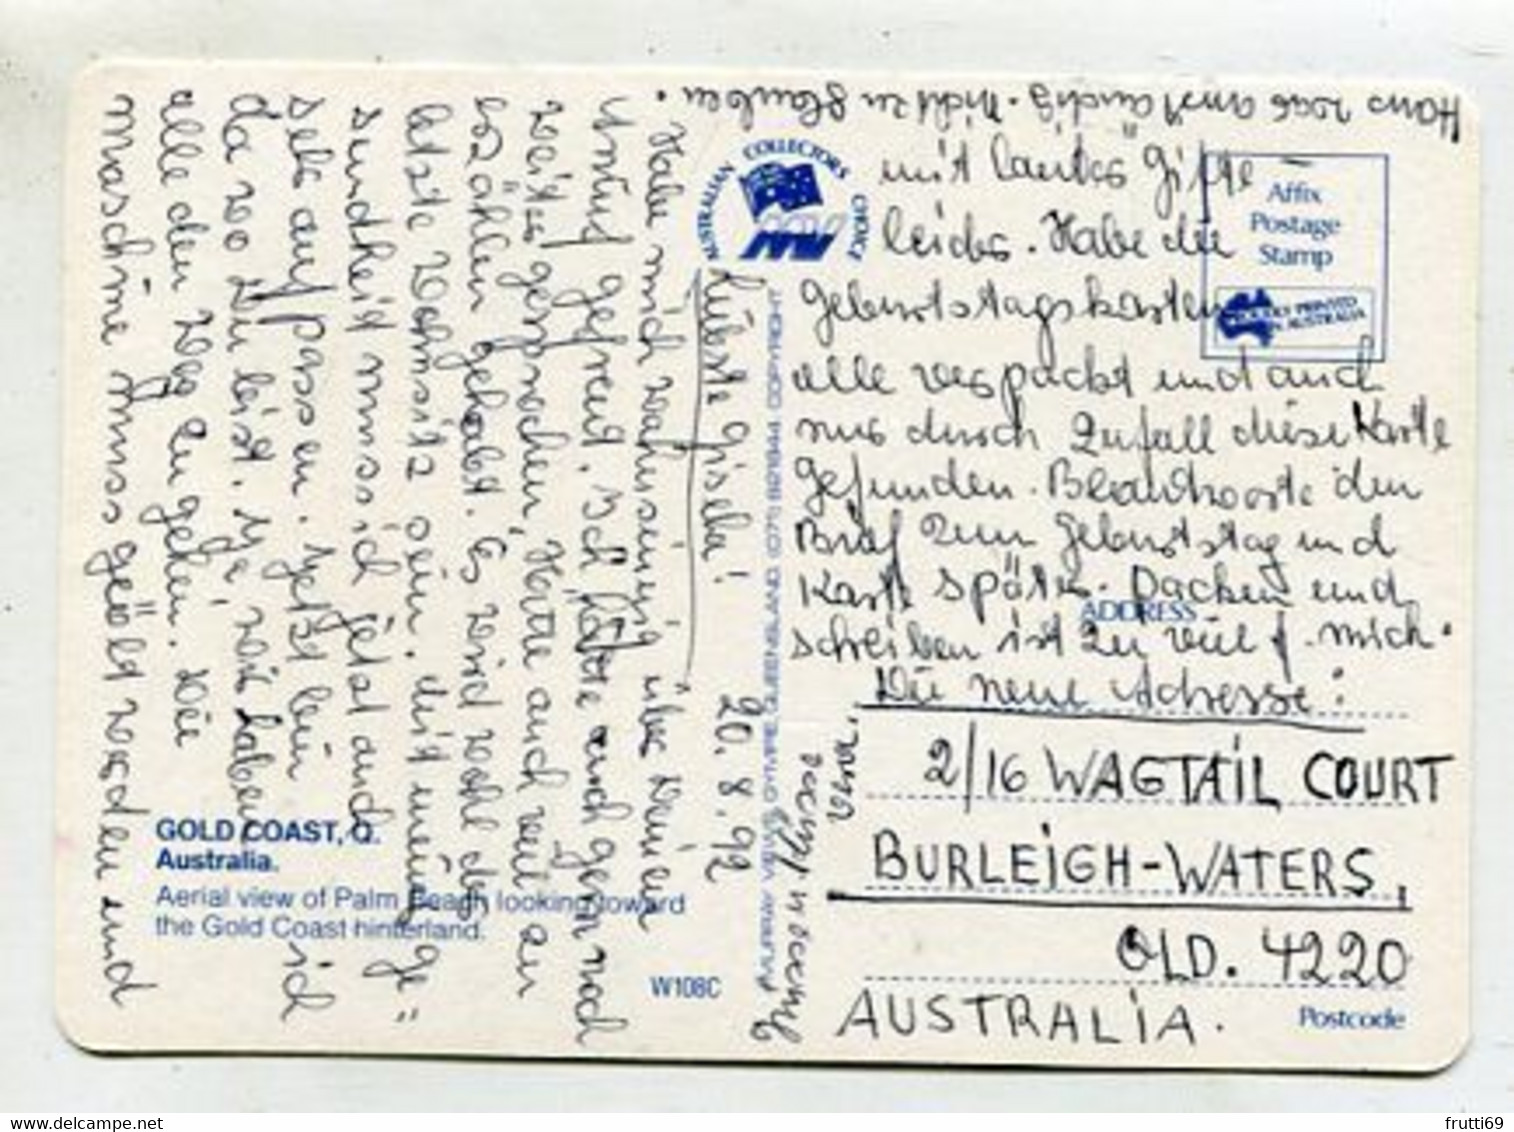 20. 8. 92
Liebste Gisela!
Habe mich wahnsinnig über Deinen
Anruf gefreut. Ich hätte auch gern noch
weiter gesprochen, Hätte auch viel zu
erzählen gehabt. Es wird wohl der
letzte Wohnsitz sein. Mit meiner Ge"
sundheit muss ich jetzt auch
sehr aufpassen. Jetzt bin ich
da wo Du bist. Ja, wir haben
alle den Weg zu gehen. Die
Maschine muss geölt werden und
mit lauter Gifte
leider. Habe die
Geburtstagskarten
alle verpackt und auch
nur durch Zufall diese Karte
gefunden. Beantworte den
Brief zum Geburtstag und
Karte später. Packen und
schreiben ist zu viel f. mich.
Die neue Adresse:
2/16 WAGTAIL COURT
BURLEIGH-WATERS,
QLD. 4220
AUSTRALIA.
Vera.
Hans war anständig. Nicht zu glauben.
AUSTRALIAN COLLECTORS CHOICE
Affix
Postage
Stamp
PROUDLY PRINTED
IN AUSTRALIA
ADDRESS
Postcode
GOLD COAST, Q.
Australia.
Aerial view of Palm Beach looking toward
the Gold Coast hinterland.
W108C
frutti69